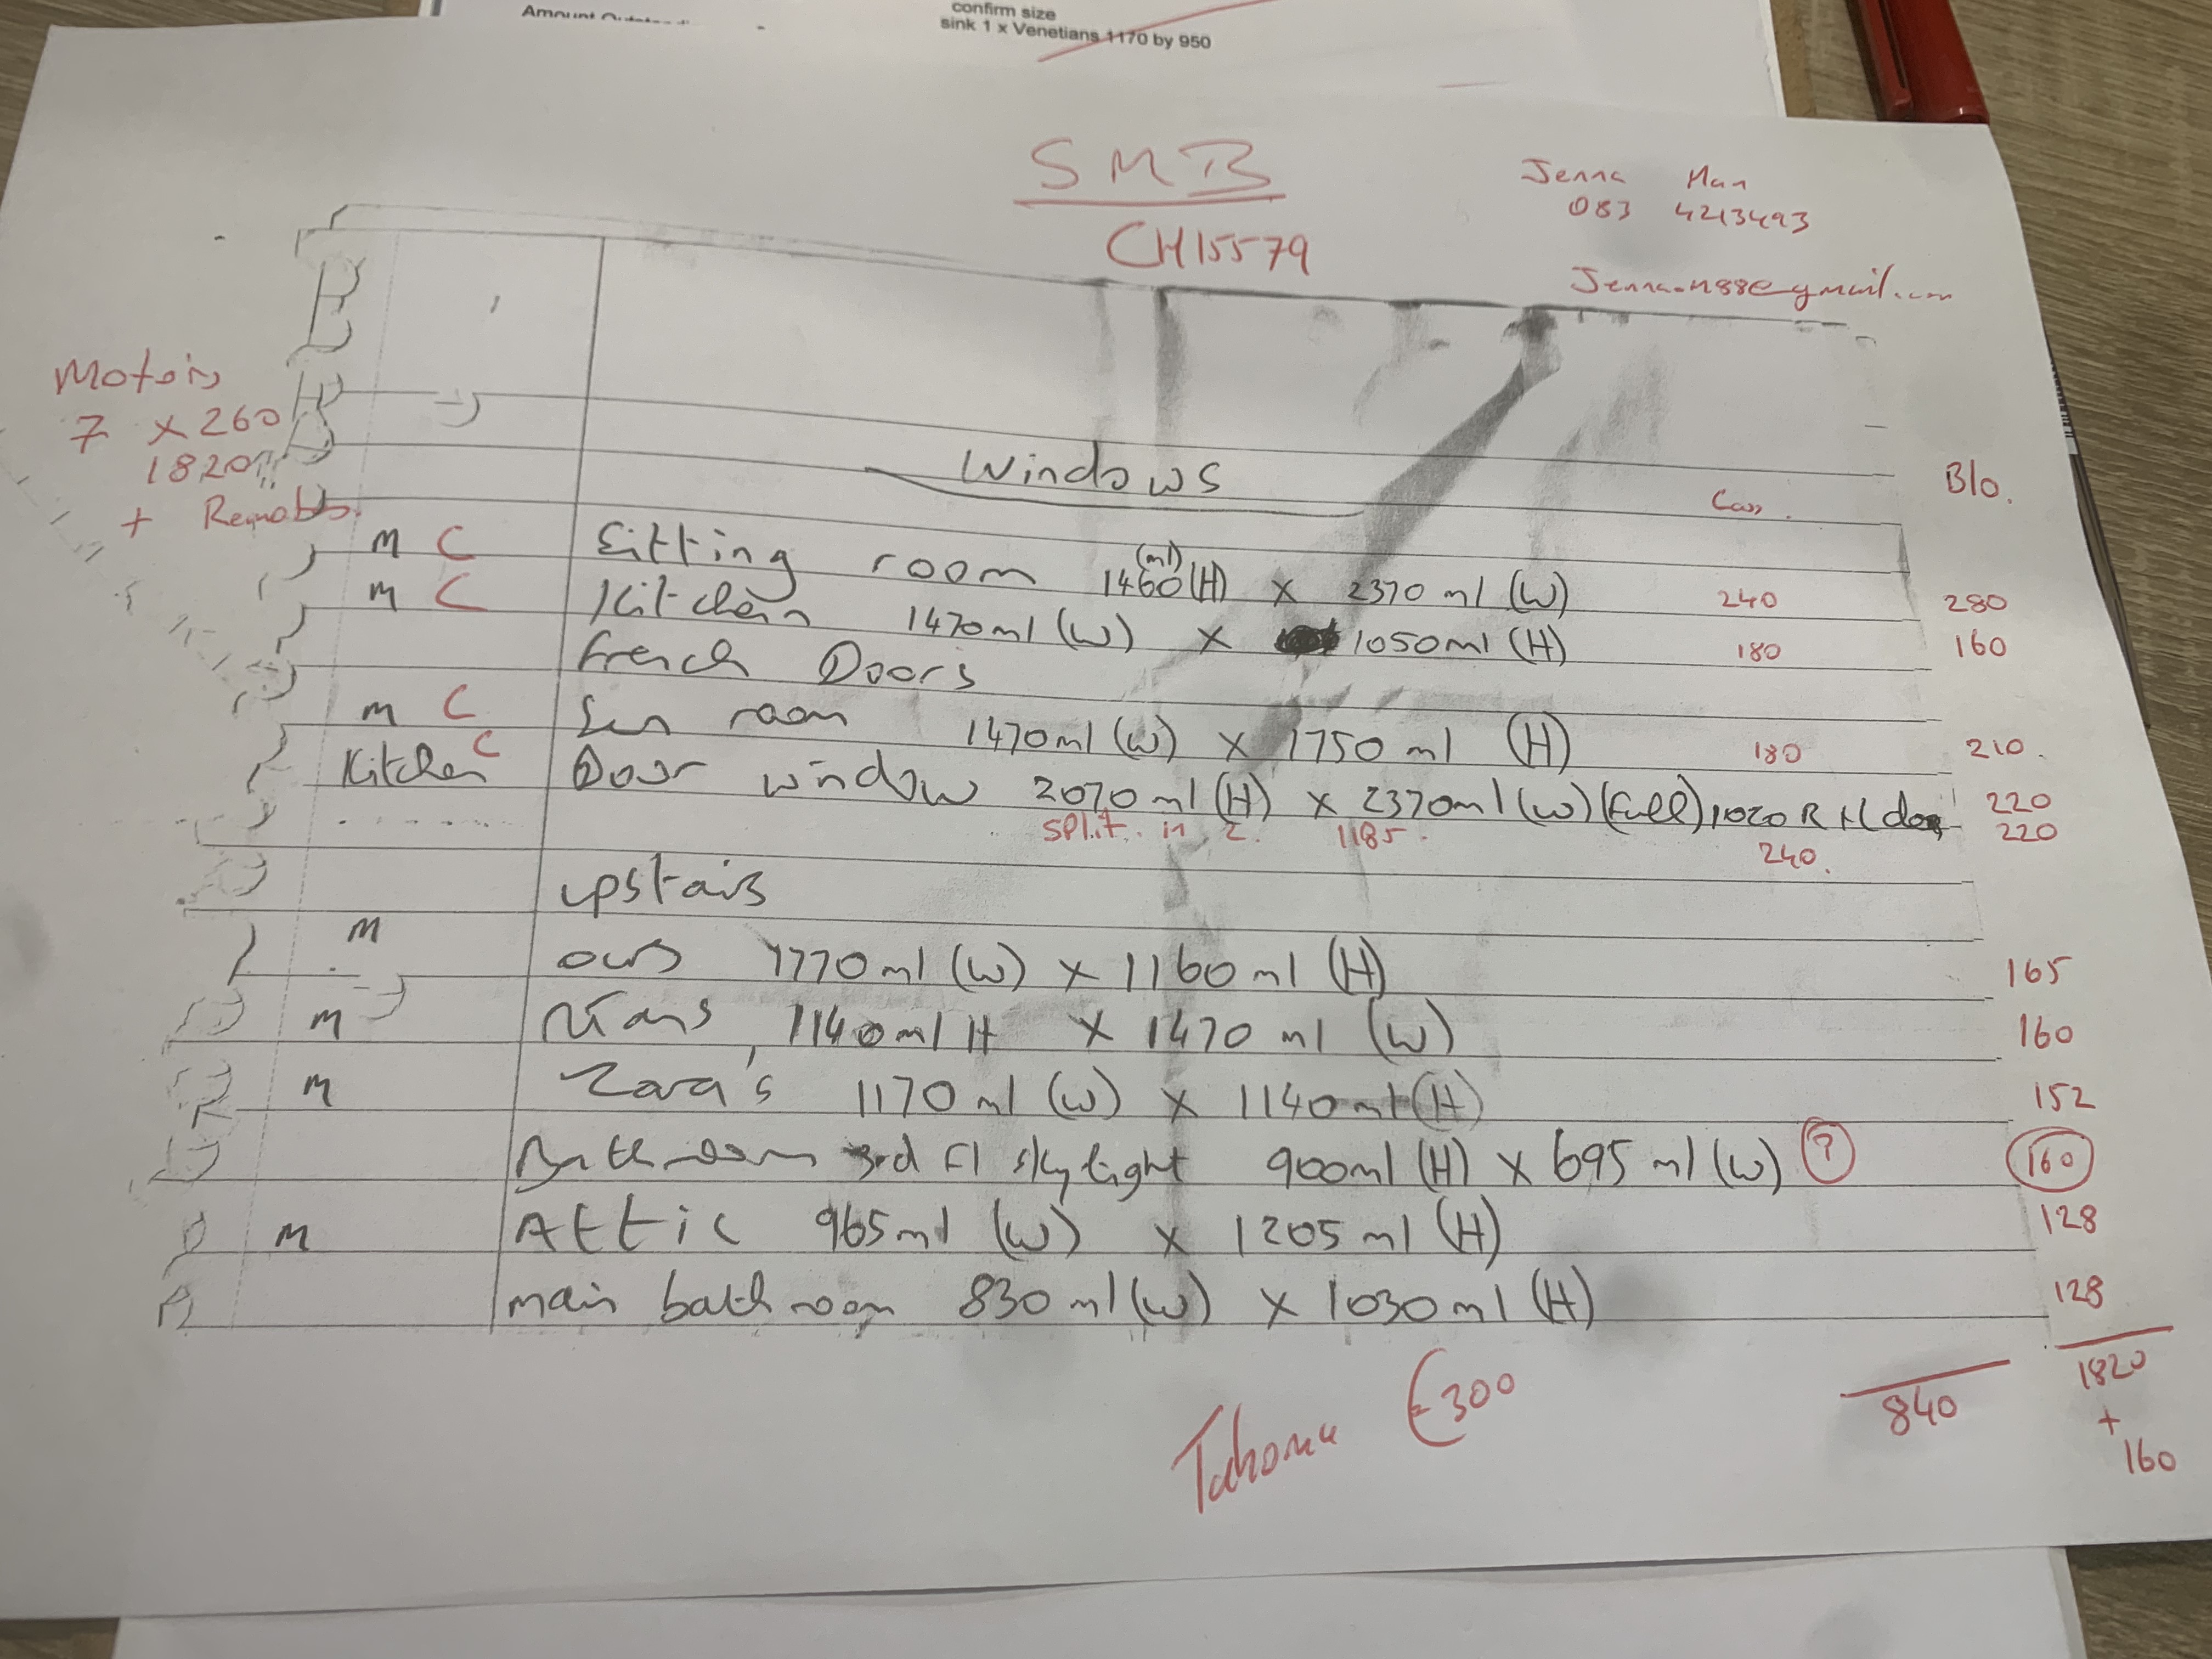 confirm size
sink 1 x Venetians 1170 by 950
SMB
CH15579
Jenna Man
083 4213493
@gmail.com
Motors
7 x 260
1820
+ Remotes
Windows
Cass. Blo.
M C Sitting room 1460 (ml) (H) x 2370 ml (W) 240 280
M C Kitchen 1470ml (W) x 1050ml (H) 180 160
French Doors
M C Sun room 1470ml (W) x 1750 ml (H) 180 210.
Kitchen C Door window 2070 ml (H) x 2370ml (W) (full) 1020 R H door 220
split in 2. 1185. 240. 220
upstairs
M ours 1770ml (W) x 1160ml (H) 165
M 1140ml H x 1470 ml (W) 160
M Zara's 1170 ml (W) x 1140ml (H) 152
Bathroom 3rd Fl skylight 900ml (H) x 695 ml (W) ? 160
M Attic 965ml (W) x 1205 ml (H) 128
main bathroom 830 ml (W) x 1030 ml (H) 128
840 1820
+
160
Tahoma €300